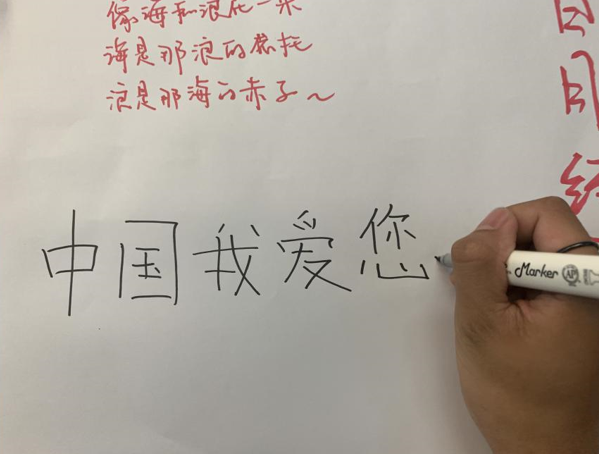 像海和浪花一朵
海是那浪的依托
浪是那海的赤子～
中国我爱您
Marker